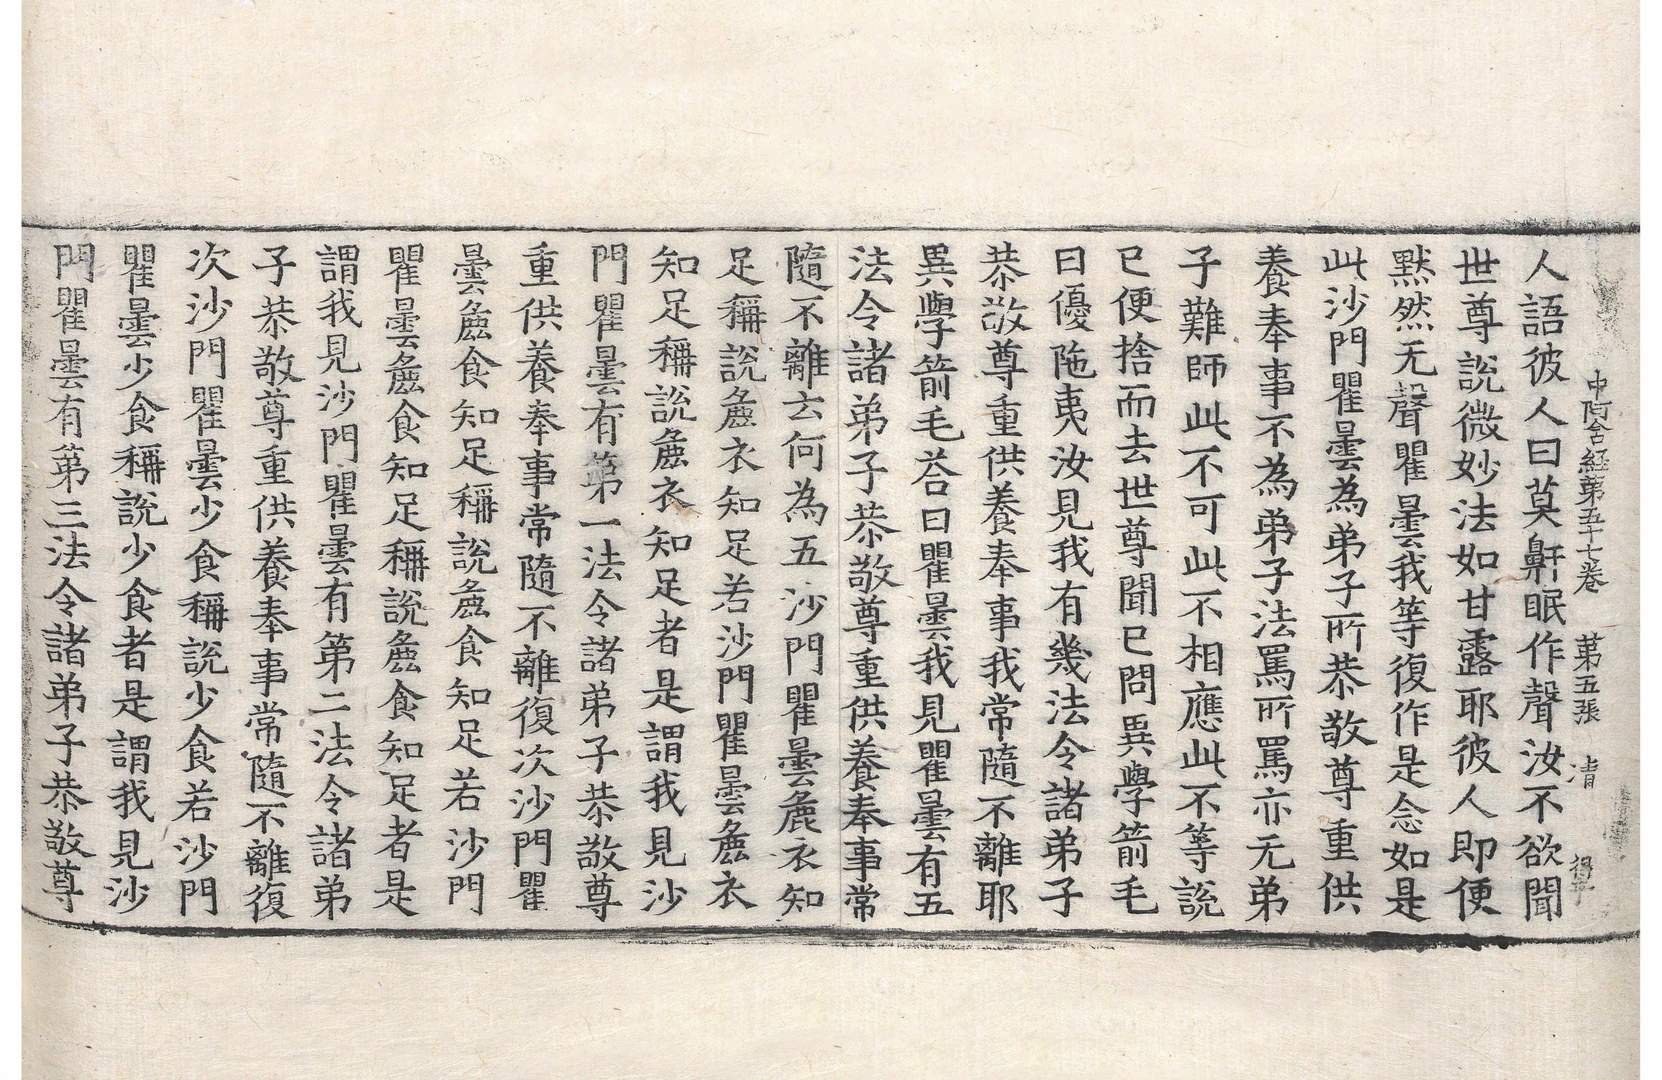 中阿含経第五十七巻 第五張 清
人語彼人曰莫鼾眠作聲汝不欲聞
世尊說微妙法如甘露耶彼人即便
黙然无聲瞿曇我等復作是念如是
此沙門瞿曇為弟子所恭敬尊重供
養奉事不為弟子法罵所罵亦无弟
子難師此不可此不相應此不等說
已便捨而去世尊聞已問異學箭毛
曰優陁夷汝見我有幾法令諸弟子
恭敬尊重供養奉事我常隨不離耶
異學箭毛荅曰瞿曇我見瞿曇有五
法令諸弟子恭敬尊重供養奉事常
隨不離云何為五沙門瞿曇麁衣知
足稱說麁衣知足若沙門瞿曇麁衣
知足稱說麁衣知足者是謂我見沙
門瞿曇有第一法令諸弟子恭敬尊
重供養奉事常隨不離復次沙門瞿
曇麁食知足稱說麁食知足若沙門
瞿曇麁食知足稱說麁食知足者是
謂我見沙門瞿曇有第二法令諸弟
子恭敬尊重供養奉事常隨不離復
次沙門瞿曇少食稱說少食若沙門
瞿曇少食稱說少食者是謂我見沙
門瞿曇有第三法令諸弟子恭敬尊